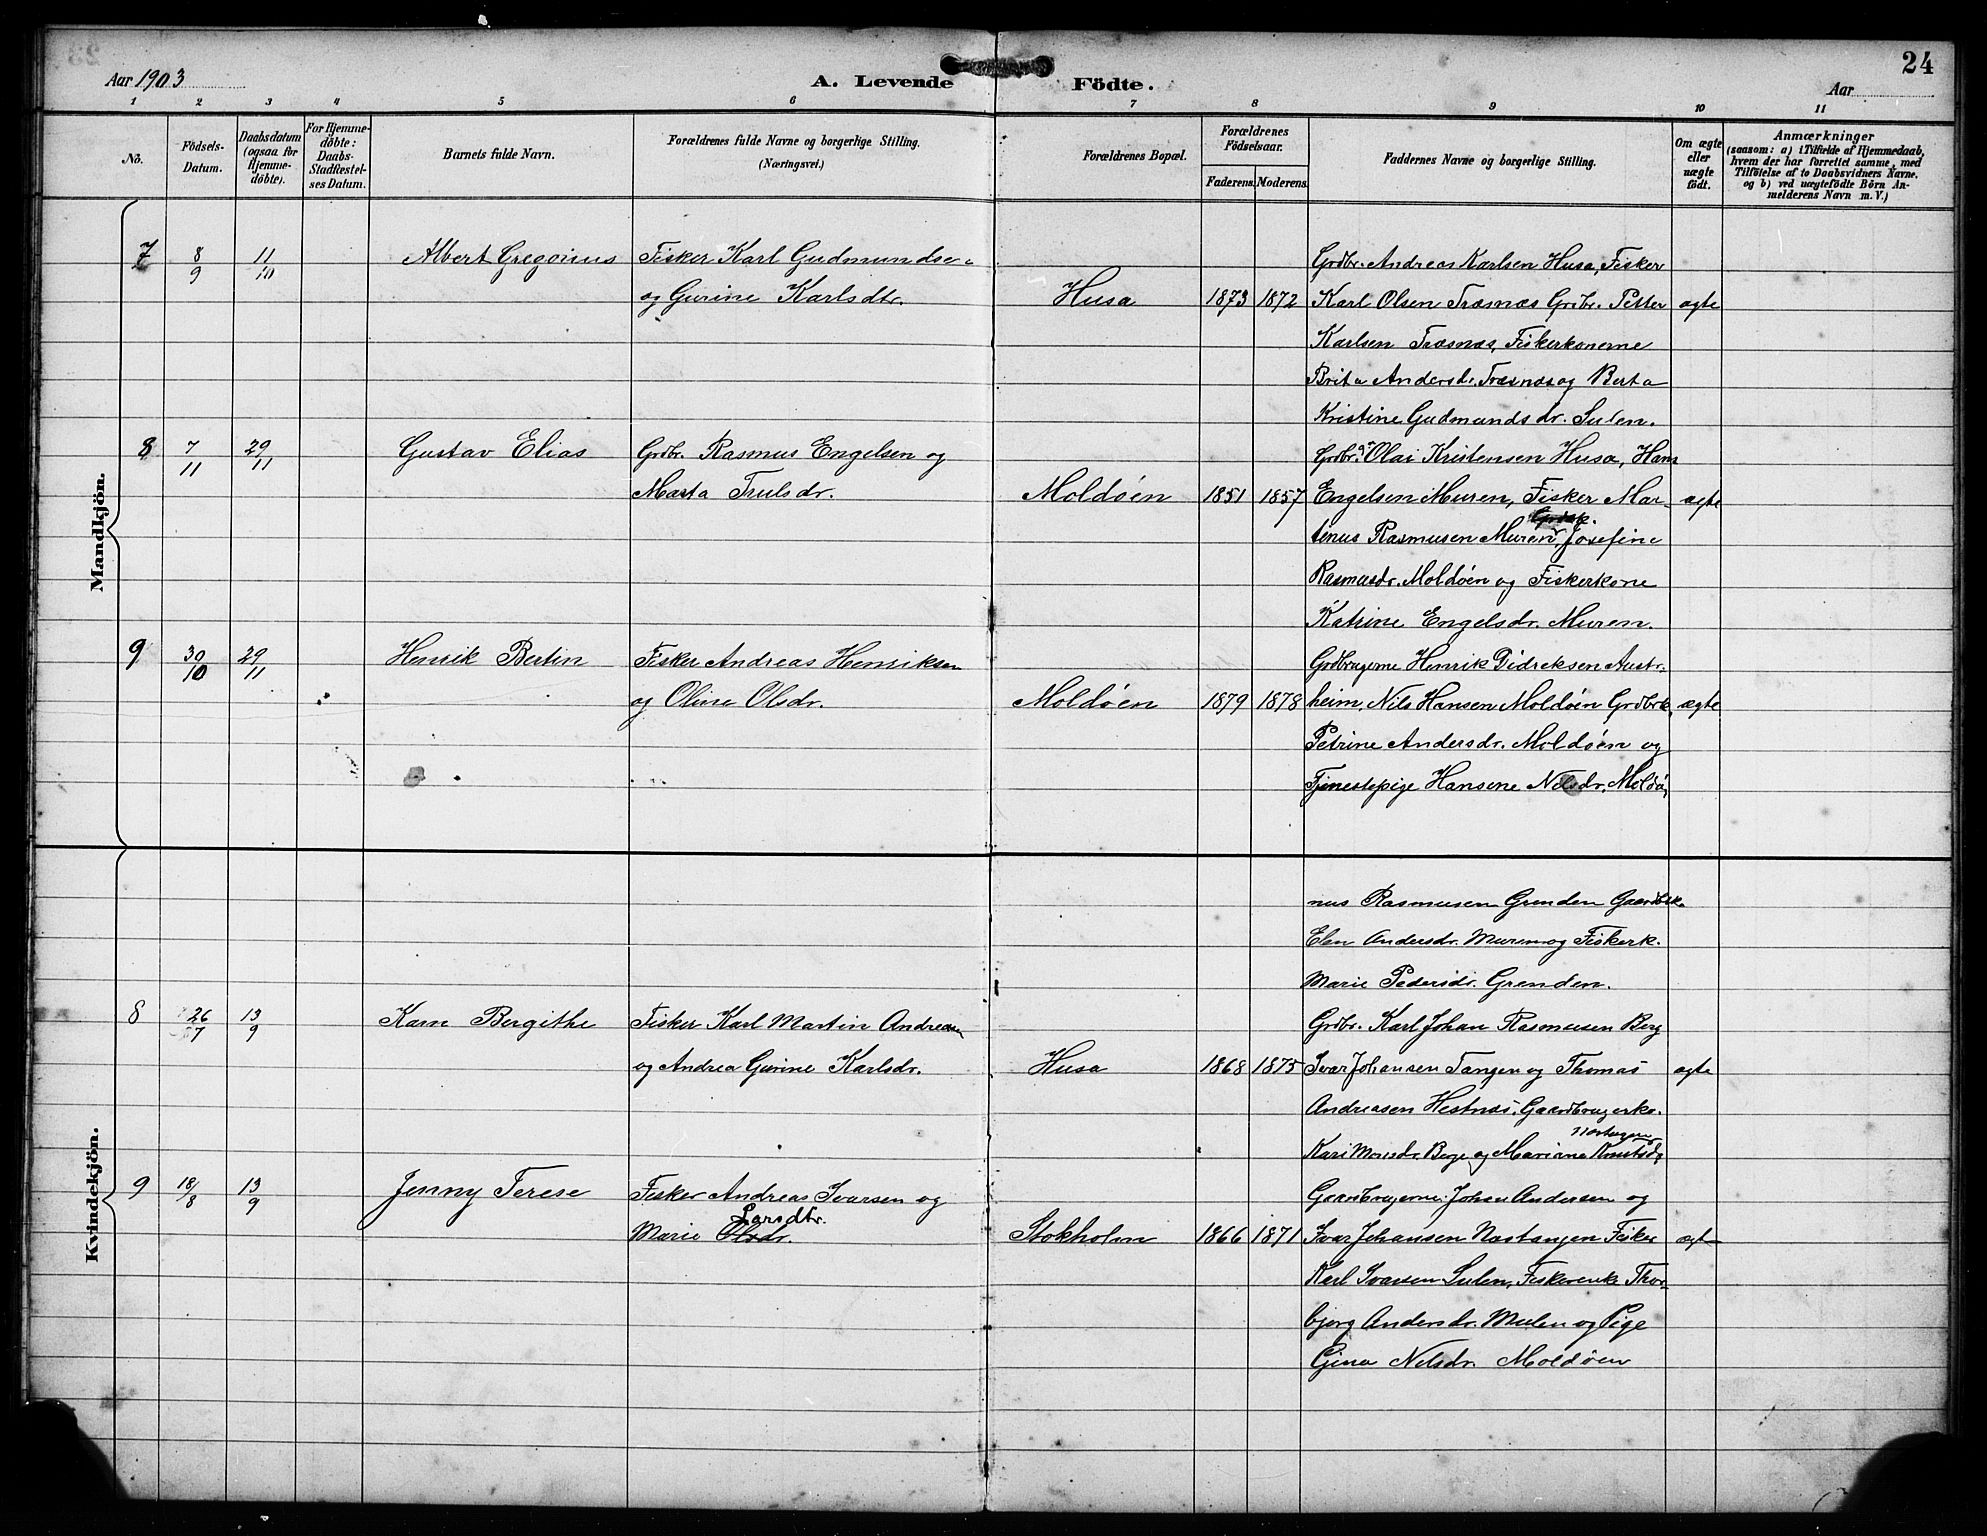 24
Aar 1903
A. Levende
Födte.
Aar
1 2 3 4 5 6 7 8 9 10 11
No.
Födsels-Datum.
Daabsdatum (ogsaa for Hjemme-döbte).
For Hjemme-döbte: Daabs-Stadfæstel-ses Datum.
Barnets fulde Navn.
Forældrenes fulde Navne og borgerlige Stilling.
(Næringsvei.)
Forældrenes Bopæl.
Forældrenes Födselsaar.
Faderens. Moderens.
Faddernes Navne og borgerlige Stilling.
Om ægte eller uægte födt.
Anmærkninger
(saasom: a) i Tilfælde af Hjemmedaab,
hvem der har forrettet samme, med
Tilföielse af to Daabsvidners Navne.
og b) ved uægtefödte Börn An-
melderens Navn m. V.)
Mandkjön.
7 8/9 11/10 Albert Gregorius Fisker Karl Gudmundse
Grdbr. Andreas Karlsen Husa, Fisker
og Gurine Karlsdtr. Husa 1873 1872 Karl Olsen Træsnæs Grdbr. Petter ægte
Karlsen Træsnæs, Fiskerkonerne
Brita Andersdr. Træsnæs og Berta
Kristine Gudmundsdr. Sulen.
8 7/11 29/11 Gustav Elias Grdbr. Rasmus Engelsen og
Grdbr. Olai Kristensen Husa, Hans
Marta Trulsdr. Moldöen 1851 1857 Engelsen Muren, Fisker Mar- ægte
tinus Rasmusen Muren, Josefine
Rasmusdr. Moldöen og Fiskerkone
Katrine Engelsdr. Muren.
9 30/10 29/11 Henrik Bertin Fisker Andreas Henriksen
Grdbrugerne Henrik Didreksen Austr-
og Oline Olsdr. Moldöen 1879 1878 heim, Nils Hansen Moldöen Grdbrk. ægte
Petrine Andersdr. Moldöen og
Tjenestepige Hansene Nilsdr. Moldö
Kvindekjön.
nus Rasmusen Grenden Gaardbrk.
Elen Andersdr. Muren og Fiskerk.
Marie Pedersdr. Grenden.
8 26/7 13/9 Karn Bergithe Fisker Karl Martin Andreasn
Grdbr. Karl Johan Rasmusen Berg
og Andrea Gurine Karlsdr. Husa 1868 1875 Ivar Johansen Tangen og Thomas ægte
Andreasen Hestnæs, Gaardbrugerko.
Kari Monsdr. Berge og Mariane Knutsdr
9 18/8 13/9 Jenny Terese Fisker Andreas Ivarsen og
Gaardbrugerne: Johan Andersen og
Larsdtr.
Marie Olsdr. Stokholm 1866 1871 Ivar Johansen Næstangen Fisker ægt
Karl Ivarsen Sulen, Fiskerenke Thor-
bjørg Andersdr. Mulen og Pige
Gina Nelsdr. Moldöen